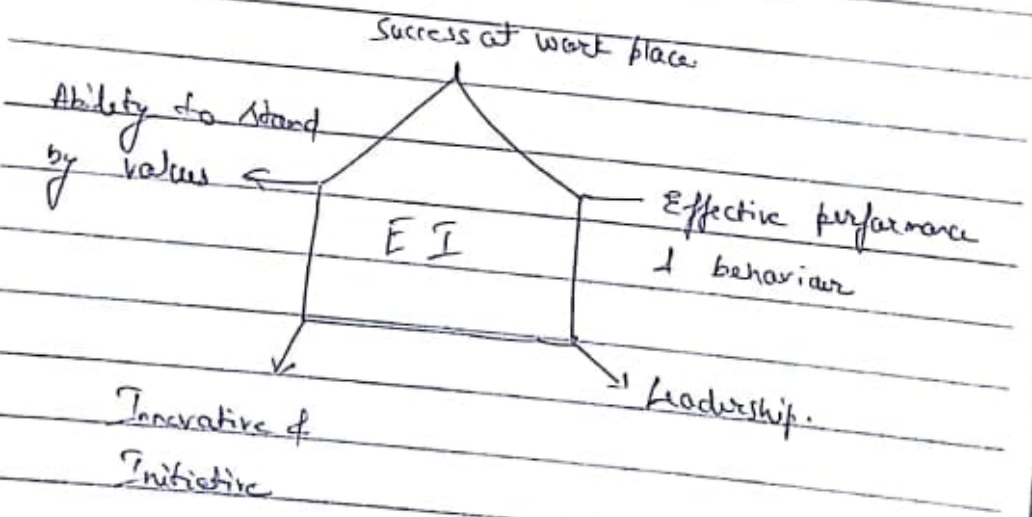 Success at work place
Ability to stand
by values
EI
Effective performance
& behaviour
Leadership.
Innovative &
Initiative